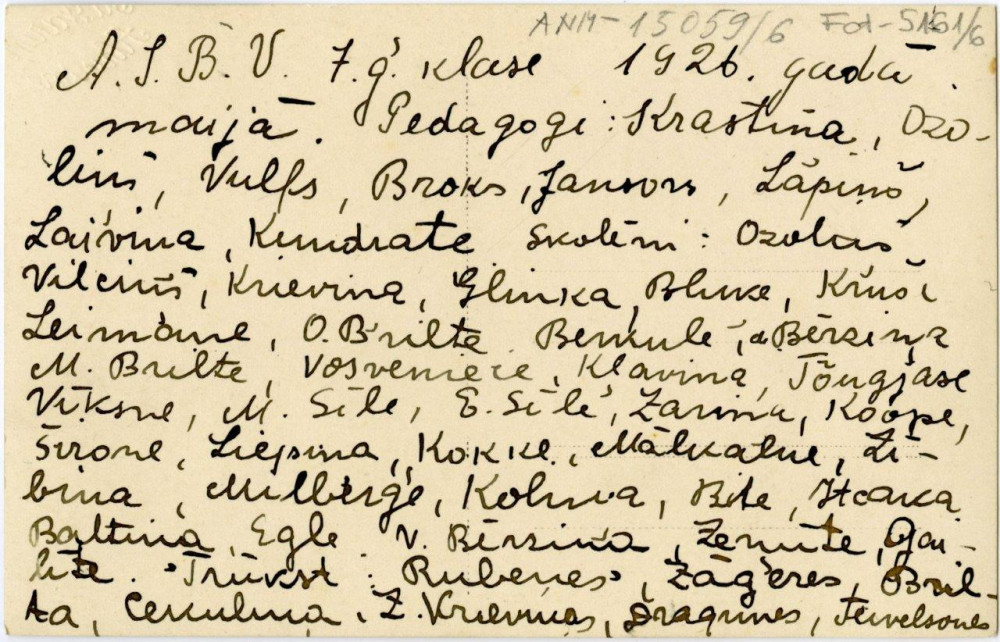 ANM-15059/6 Fot-5161/6
A. S. B. V. 7.g. klase 1926. gadā
maijā. Pedagogi: Krastiņa, Ozo-
liņš, Vulfs, Broks, Jansons, Lāpiņš,
Laiviņa, Kundrate Skolēni: Ozoliņš
Vilciņš, Krieviņa, Glinka, Bluķe,
Leimane, O. Brilte Benkule, Bērziņa
M. Brilte, Vosveniece, Klaviņa, Jōugjase
Vīksne, M. Sīle, E. Sīle, Zariņa, Koope,
Sirone, Liepiņa, Kokke, Mālkalne, Zī-
biņa, Milberģe, Kolniņa, Bite,
Baltiņa, Egle V. Bērziņa, Zemīte, Gai-
līte. Trūkst: Rubenes, Žāģeres, Bril-
ta, Cekuliņa, Z. Krieviņas, Draguņes, Teivelsones